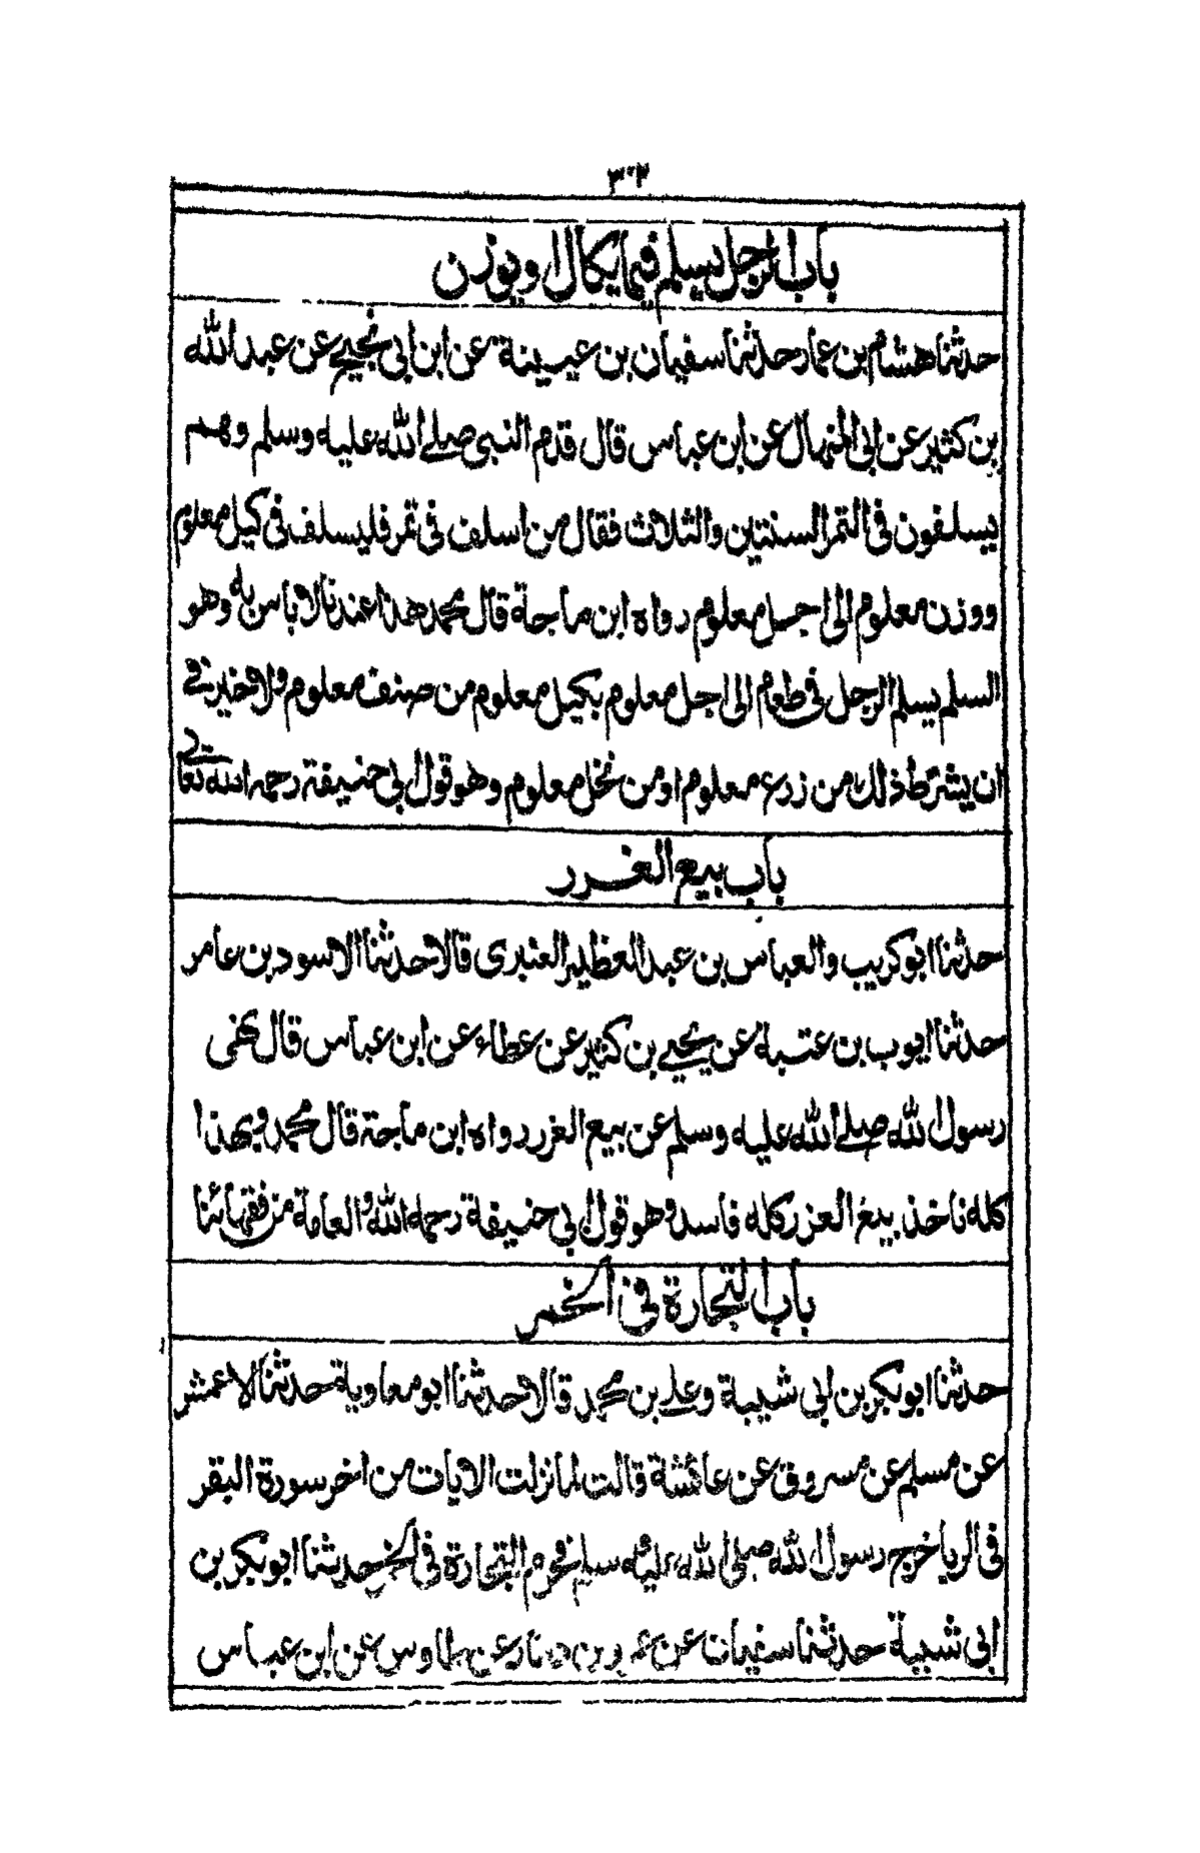 ٣٠٢
باب الرجل يسلم فيما يكال او يوزن
حدثنا هشام بن عمار حدثنا سفيان بن عيينة عن ابن ابى نجيح عن عبد الله
بن كثير عن ابى المنهال عن ابن عباس قال قدم النبى صلے الله عليه وسلم وهم
يسلفون فى التمر السنتين والثلاث فقال من اسلف فى تمر فليسلف فى كيل معلوم
ووزن معلوم الى اجل معلوم رواه ابن ماجة قال محمد هذا عندنا لا باس به وهو
السلم يسلم الرجل فى طعام الى اجل معلوم بكيل معلوم من صنف معلوم ولا خير فے
ان يشترط ذلك من زرع معلوم او من نخل معلوم وهو قول ابى حنيفة رحمه الله تعالے
باب بيع الغرر
حدثنا ابو كريب والعباس بن عبد العظيم العنبرى قالا حدثنا الاسود بن عامر
حدثنا ايوب بن عتبة عن يحيے بن كثير عن عطاء عن ابن عباس قال نهى
رسول الله صلے الله عليه وسلم عن بيع الغرر رواه ابن ماجة قال محمد وبهذا
كله ناخذ بيع الغرر كله فاسد وهو قول ابى حنيفة رحمه الله والعامة من فقهائنا
باب التجارة فى الخمر
حدثنا ابو بكر بن ابى شيبة وعلے بن محمد قالا حدثنا ابو معاوية حدثنا الاعمش
عن مسلم عن مسروق عن عائشة قالت لما نزلت الايات من اخر سورة البقر
فى الربا خرج رسول الله صلى الله عليه وسلم فحرم التجارة فى الخمر حدثنا ابو بكر بن
ابى شيبة حدثنا سفيان عن عمرو بن دينار عن طاوس عن ابن عباس